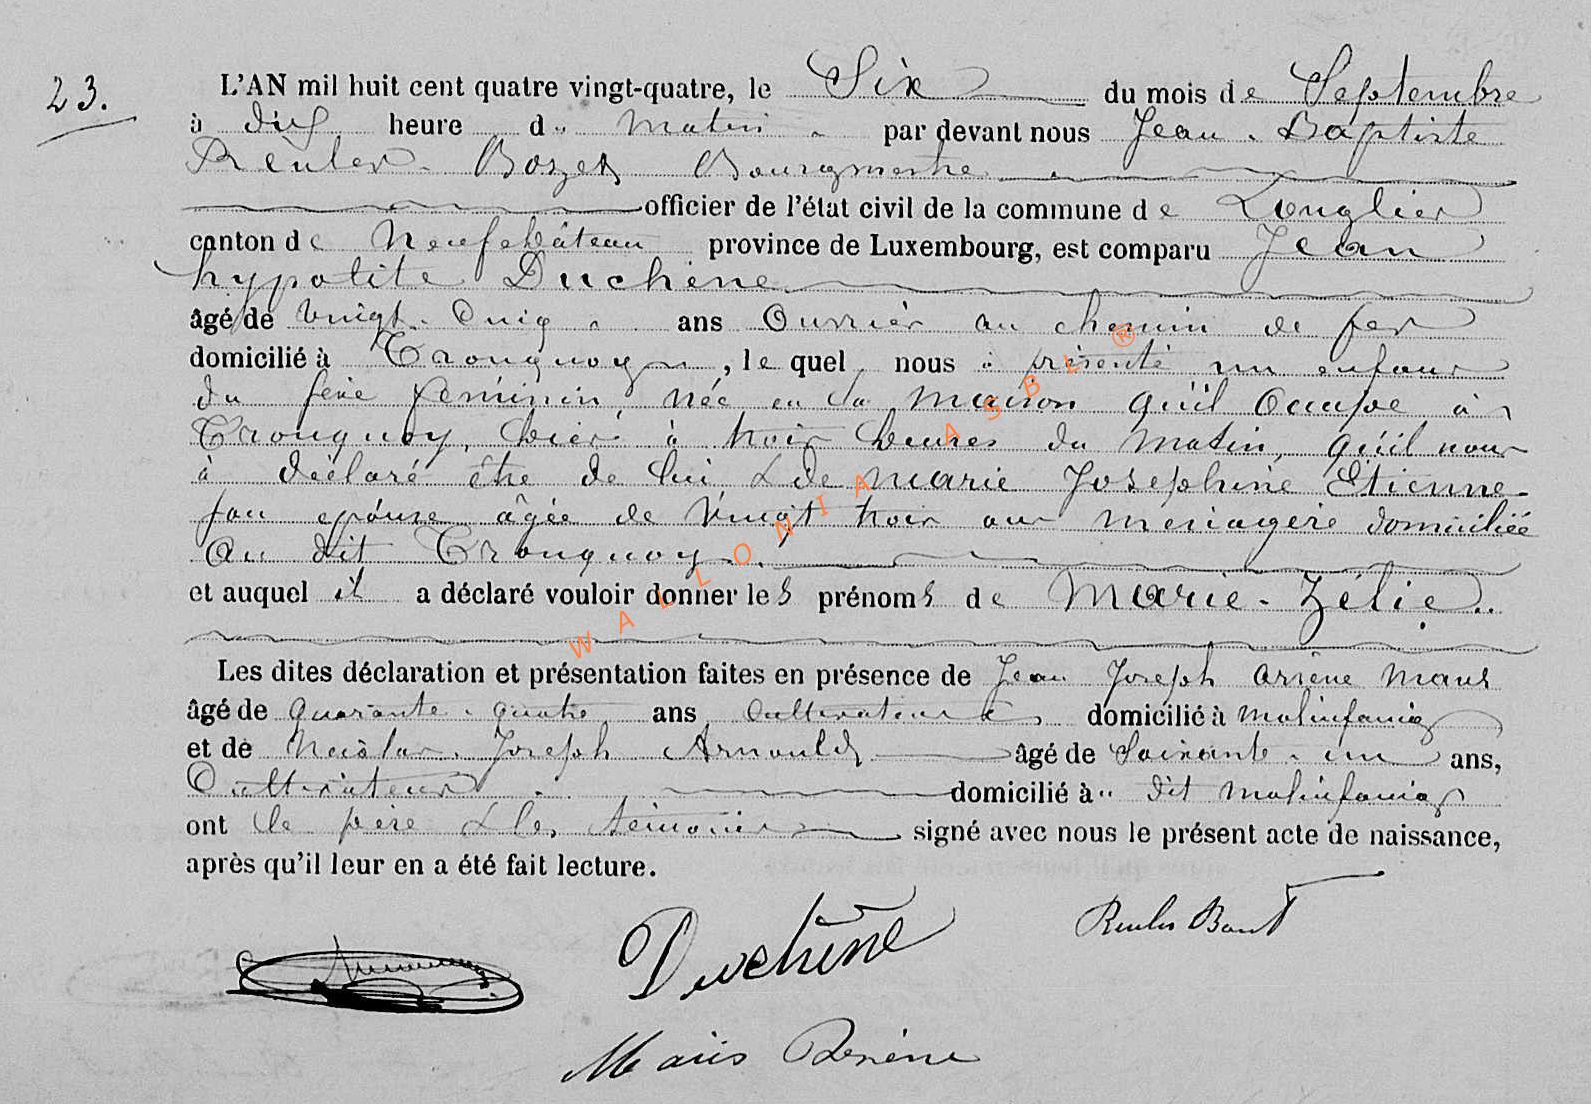 23.
L'AN mil huit cent quatre vingt-quatre, le Six du mois de Septembre
à dix heure du matin par devant nous Jean-Baptiste
Reuler-Bozet Bourgmestre
officier de l'état civil de la commune de Longlier
canton de Neufchâteau province de Luxembourg, est comparu Jean
hypolite Duchène
âgé de Vingt-Cinq ans Ouvrier au chemin de fer
domicilié à Tronquoy, le quel nous à présenté un enfant
du sexe féminin, née en la maison qu'il Occupe à
Tronquoy, hier à trois heures du matin, qu'il nous
à déclaré être de lui & de Marie Joséphine Etienne
son épouse âgée de Vingt trois ans menagère domiciliée
Au dit Tronquoy
et auquel il a déclaré vouloir donner les prénoms de Marie-Zélie.
Les dites déclaration et présentation faites en présence de Jean Joseph Arsène Maus
âgé de quarante-quatre ans Cultivateur domicilié à Molinfaing
et de Joseph Arnould âgé de Soixante-un ans,
Cultivateur domicilié à dit Molinfaing
ont le père & les témoins signé avec nous le présent acte de naissance,
après qu'il leur en a été fait lecture.
Duchêne
WALLONIA ASBL ®